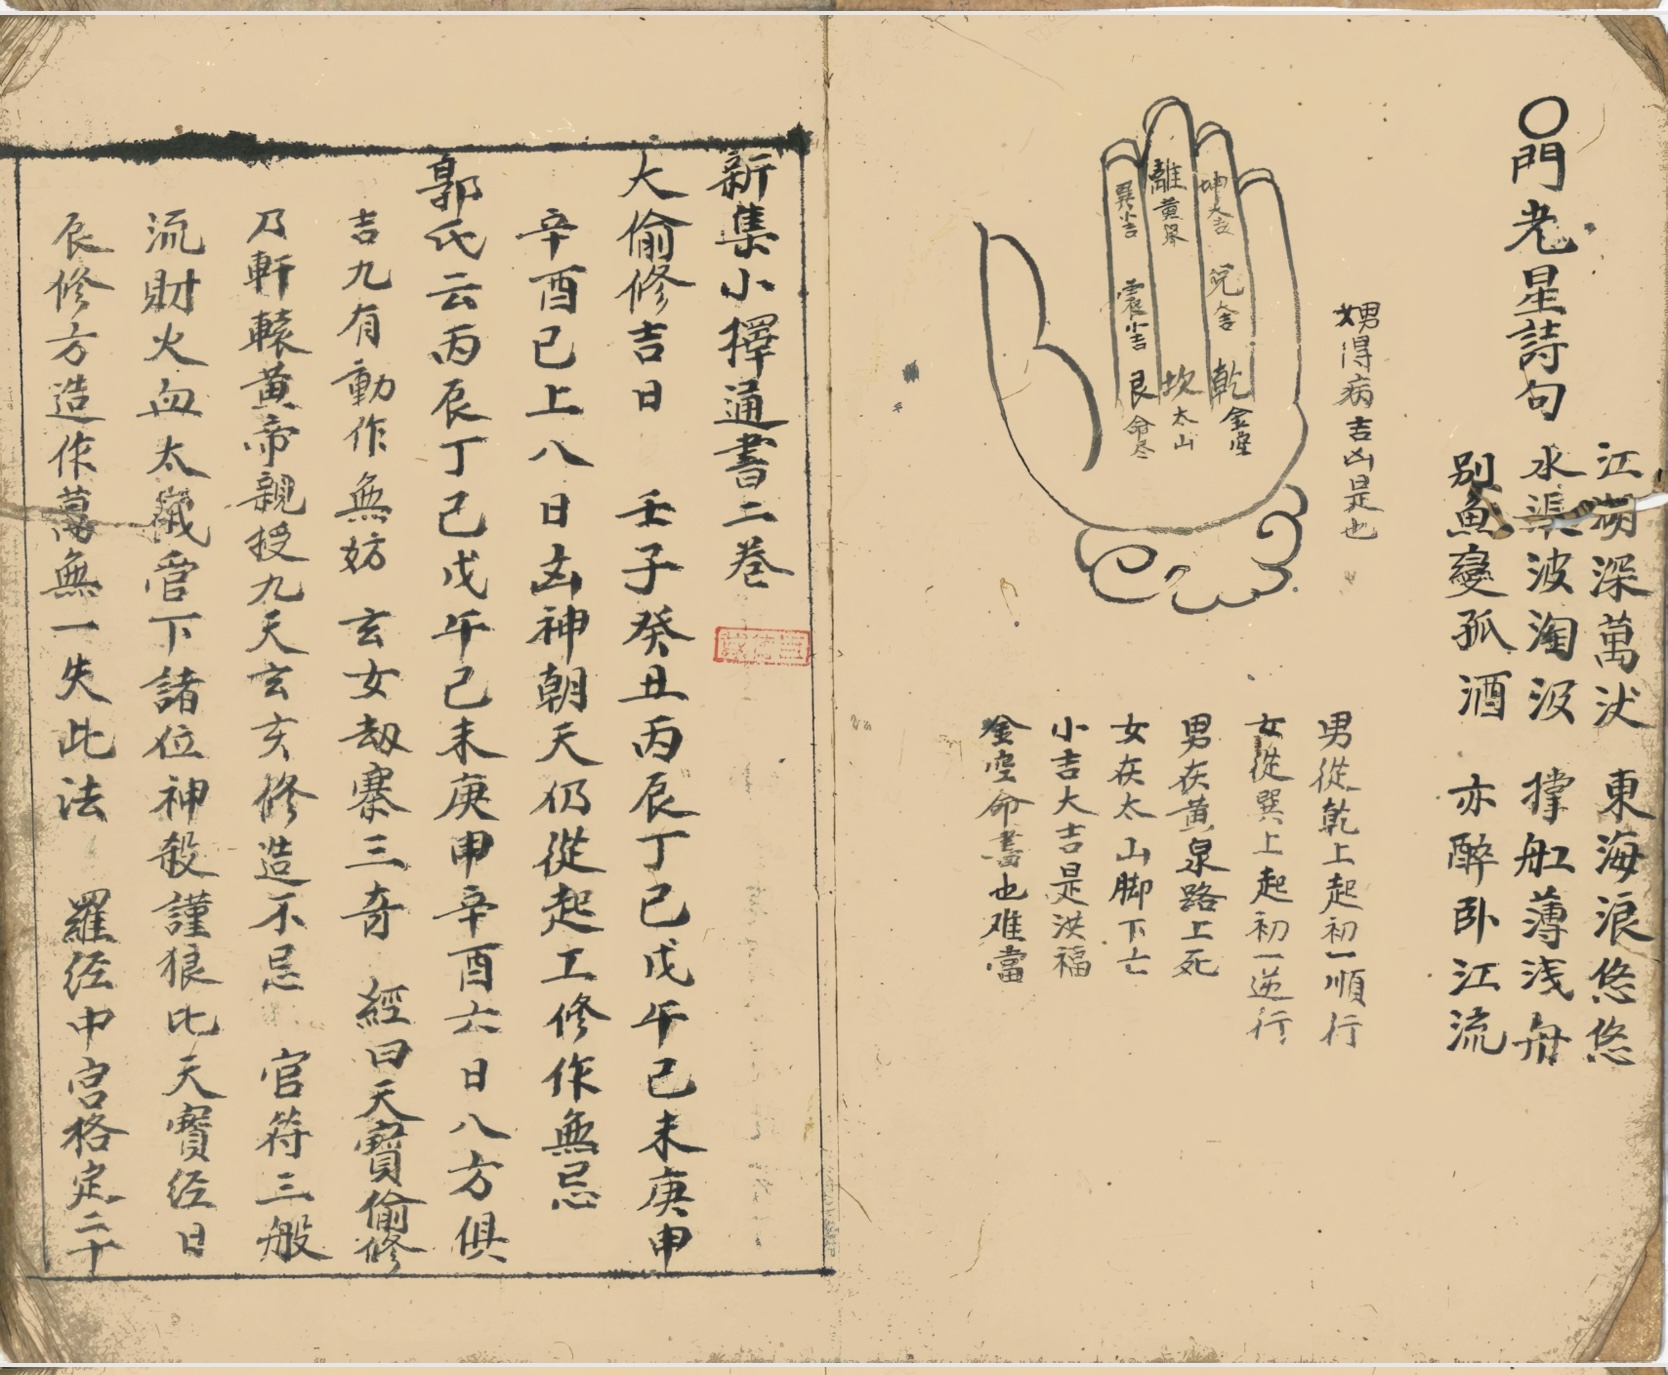 〇門老星詩句
江湖深萬丈 東海浪悠悠
水渠波淘汲 撑舡薄浅舟
别魚變孤酒 亦醉卧江流
男女得病吉凶是也
坤大吉
兌大吉
乾金空
離黃泉
坎太山
巽小吉
震小吉
艮命尽
男從乾上起初一順行
女從巽上起初一逆行
男在黄泉路上死
女在太山脚下亡
小吉大吉是洪福
金空命書也难當
新集小擇通書二巻
大偷修吉日 壬子癸丑丙辰丁巳戊午己未庚申
辛酉已上八日凶神朝天仍從起工修作無忌
郭氏云丙辰丁己戊午己未庚申辛酉六日八方俱
吉九有動作無妨 玄女劫寨三奇 經曰天寶偷修
乃軒轅黄帝親授九天玄亥修造不忌 官符三般
流財火血太歲官下諸位神殺謹狼比天寶经日
辰修方造作萬無一失此法 羅经中宫格定二十